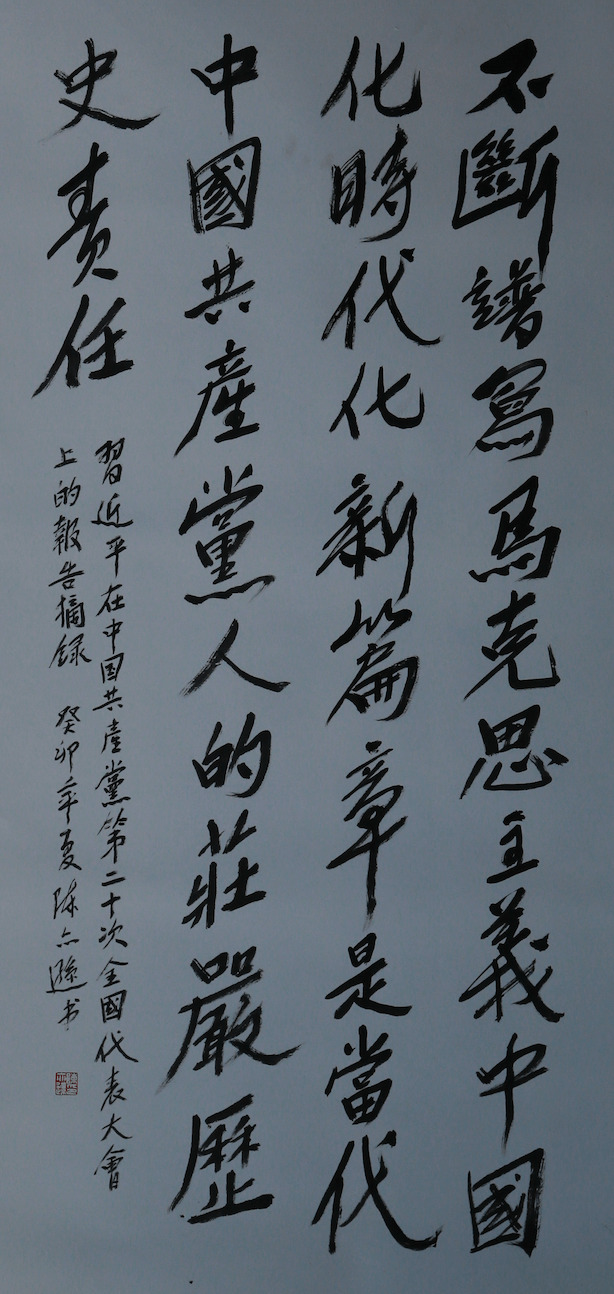 不斷譜寫馬克思主義中國
化時代化新篇章是當代
中國共產黨人的莊嚴歷
史責任
習近平在中国共產黨第二十次全國代表大會
上的報告摘録 癸卯年夏陈亦遜书